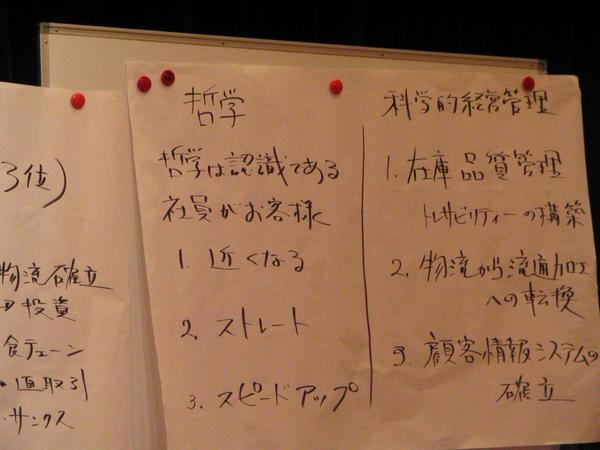 3位)
物流確立
投資
食チェーン
・直取引
・サンクス
哲学
哲学は認識である
社員がお客様
1. 近くなる
2. ストレート
3. スピードアップ
科学的経営管理
1. 在庫 品質管理
トレサビリティーの構築
2. 物流から流通加工
への転換
3. 顧客情報システムの
確立